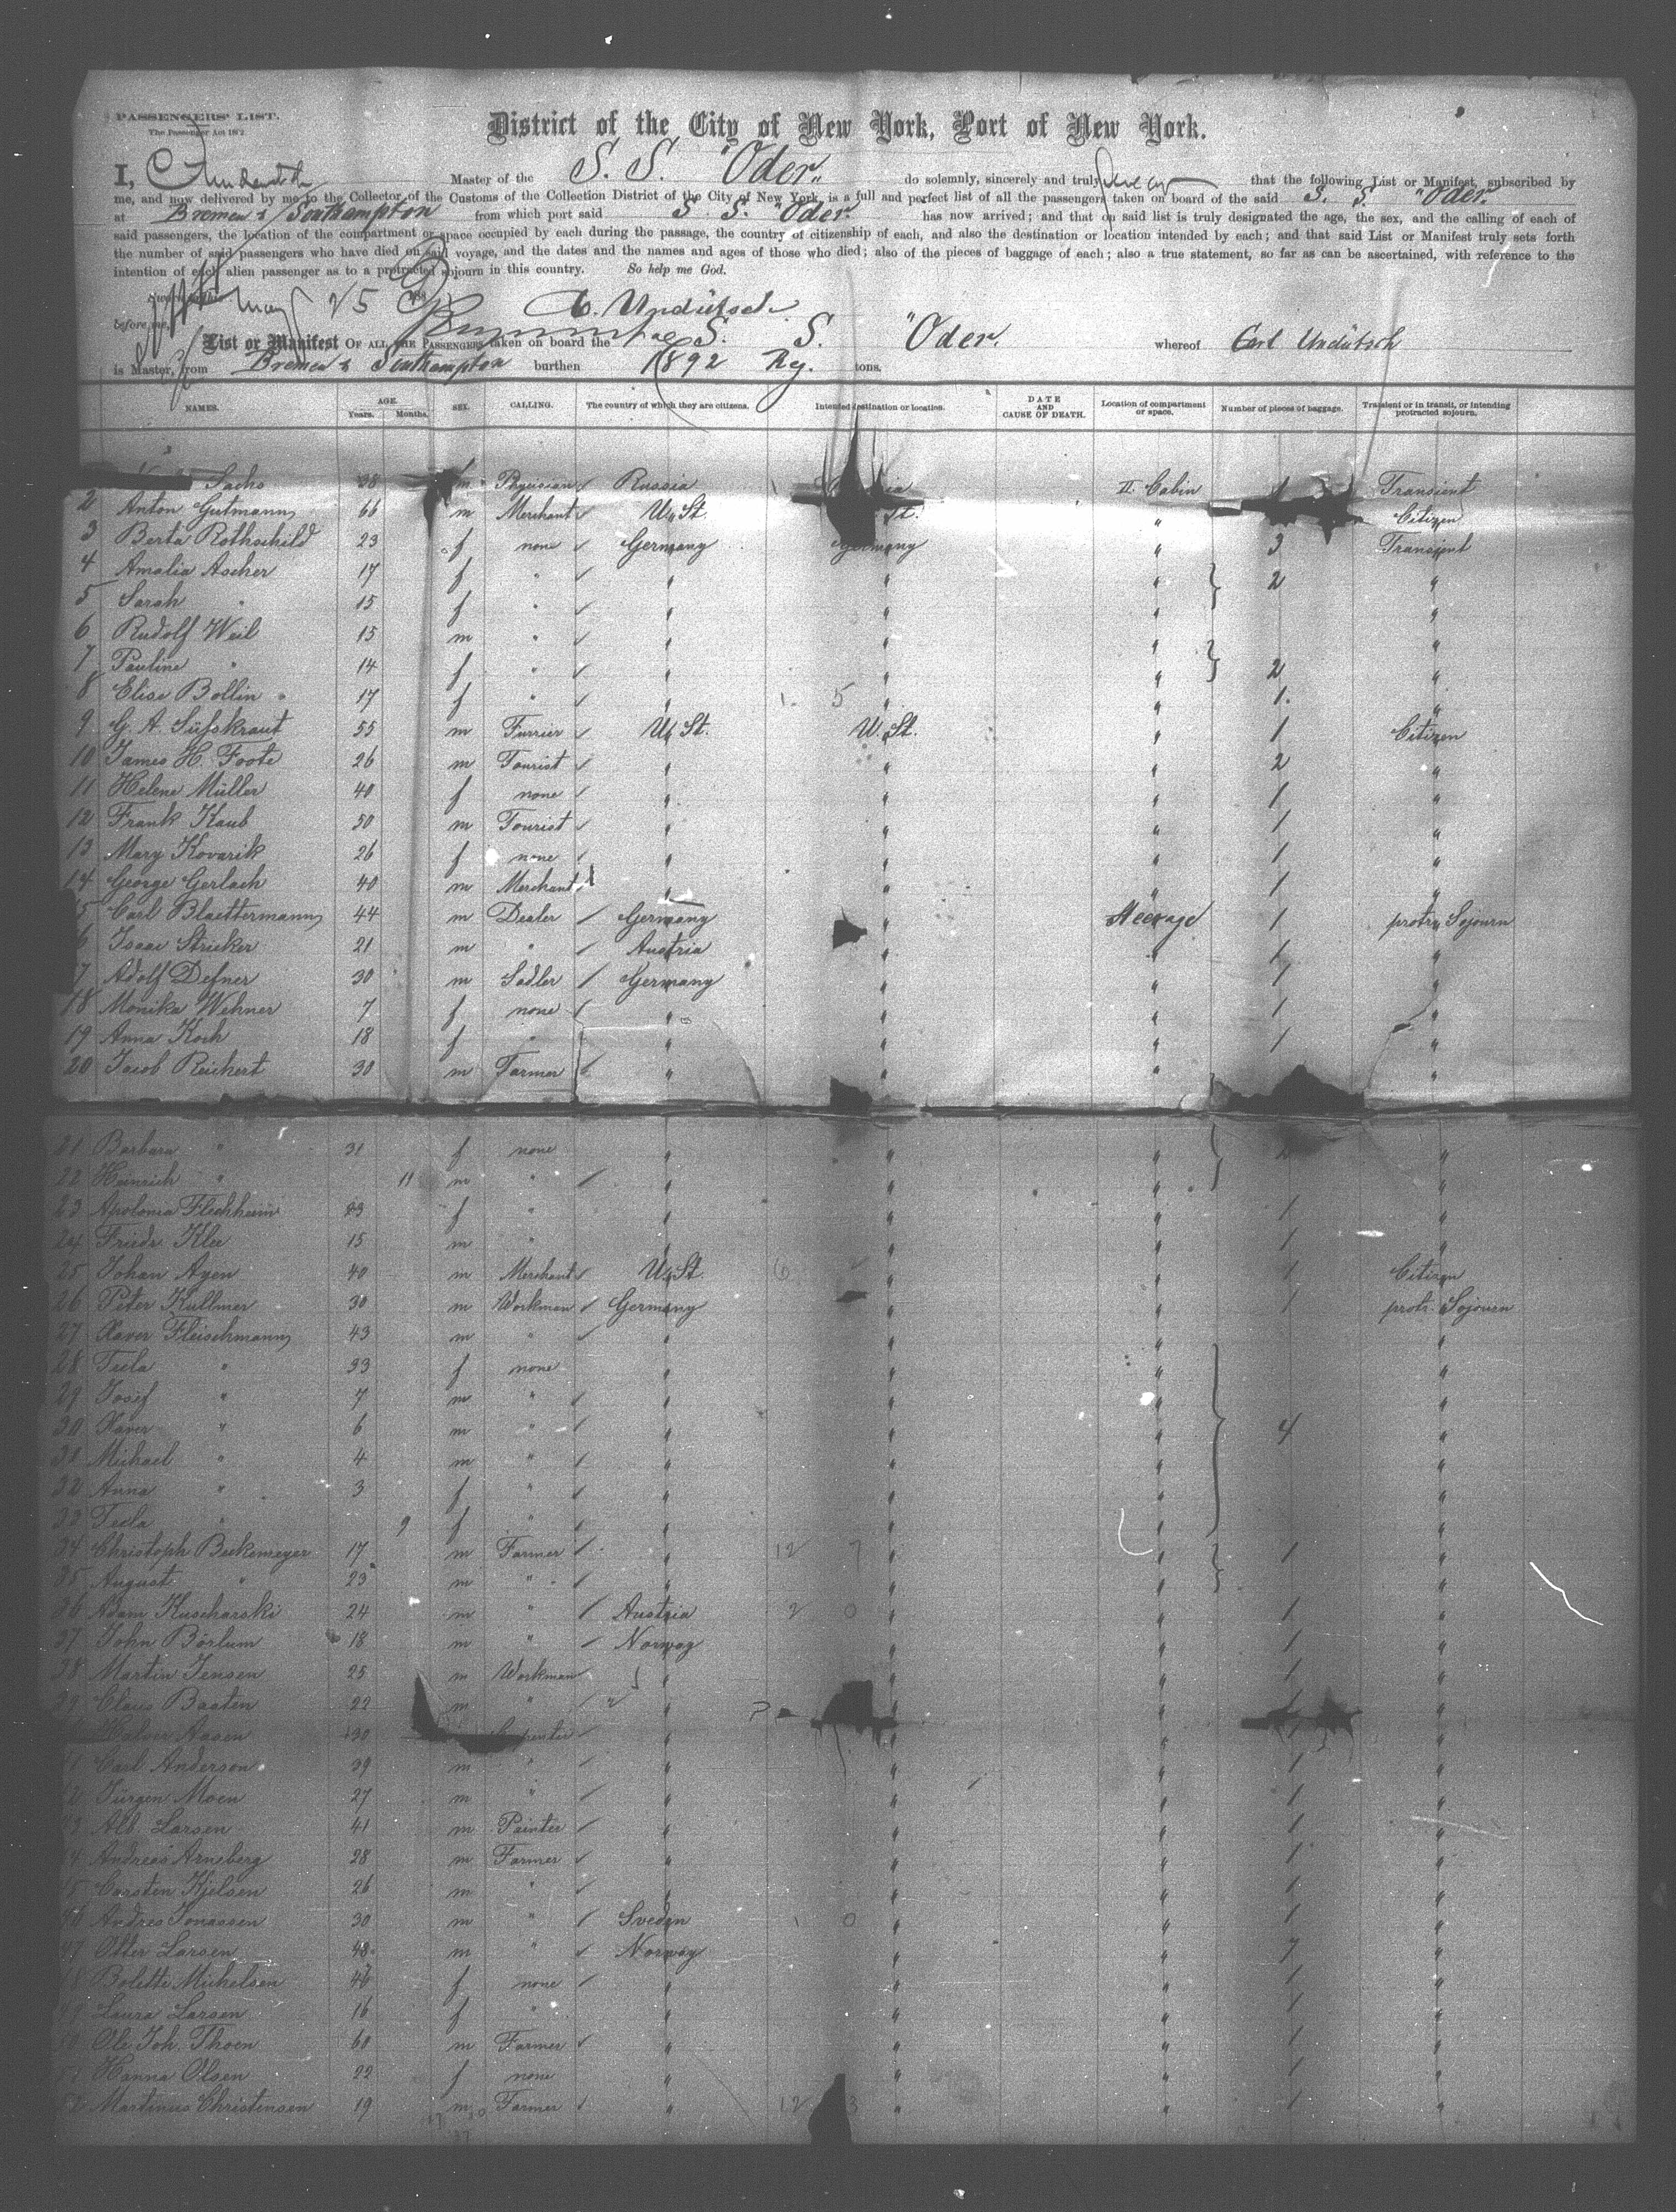 PASSENGERS' LIST.
The Passenger Act 1882
District of the City of New York, Port of New York.
I, Master of the S. S. "Oder" do solemnly, sincerely and truly that the following List or Manifest, subscribed by
me, and now delivered by me to the Collector of the Customs of the Collection District of the City of New York, is a full and perfect list of all the passengers taken on board of the said S. S. "Oder"
at Bremen & Southampton from which port said S. S. "Oder" has now arrived; and that on said list is truly designated the age, the sex, and the calling of each of
said passengers, the location of the compartment or space occupied by each during the passage, the country of citizenship of each, and also the destination or location intended by each; and that said List or Manifest truly sets forth
the number of said passengers who have died on said voyage, and the dates and the names and ages of those who died; also of the pieces of baggage of each; also a true statement, so far as can be ascertained, with reference to the
intention of each alien passenger as to a protracted sojourn in this country. So help me God.
May 25 C. Undütsch
before me,
List or Manifest OF ALL THE PASSENGERS taken on board the S. S. "Oder" whereof Carl Undütsch
is Master, from Bremen & Southampton burthen 1892 Reg. tons.
NAMES. AGE. Years. Months. SEX. CALLING. The country of which they are citizens. Intended destination or location. DATE AND CAUSE OF DEATH. Location of compartment or space. Number of pieces of baggage. Transient or in transit, or intending protracted sojourn.
Sachs 38 m Physician Russia II. Cabin 1 Transient
2 Anton Gutmann 66 m Merchant U. St. St. " Citizen
3 Berta Rothschild 23 f none Germany Germany " 3 Transient
4 Amalia Ascher 17 f " " " " 2 "
5 Sarah " 15 f " " " " "
6 Rudolf Weil 15 m " " " " "
7 Pauline " 14 f " " " " 2 "
8 Elise Bollin 17 f " " " " 1. "
9 G. A. Süfskraut 55 m Furrier U. St. U. St. " 1 Citizen
10 James H. Foote 26 m Tourist " " " 2 "
11 Helene Müller 40 f none " " " 1 "
12 Frank Kaub 50 m Tourist " " " 1 "
13 Mary Kovarik 26 f none " " " 1 "
14 George Gerlach 40 m Merchant " " " 1 "
15 Carl Blaettermann 44 m Dealer Germany " Steerage 1 protr. Sojourn
16 Isaac Stricker 21 m " Austria " " 1 "
17 Adolf Defner 30 m Sadler Germany " " 1 "
18 Monika Wehner 7 f none " " " 1 "
19 Anna Koch 18 f " " " " 1 "
20 Jacob Reichert 30 m Farmer " " " "
21 Barbara " 31 f none " " " "
22 Heinrich " 11 m " " " " "
23 Apolonia Flechheim f " " " " 1 "
24 Friedr. Klee 15 m " " " " 1 "
25 Johan Ayen 40 m Merchant U. St. " " 1 Citizen
26 Peter Kullmer 30 m Workman Germany " " 1 protr. Sojourn
27 Xaver Fleischmann 43 m " " " " "
28 Tecla " 33 f none " " " "
29 Josef " 7 m " " " " "
30 Xaver " 6 m " " " " 4 "
31 Michael " 4 m " " " " "
32 Anna " 3 f " " " " "
33 Tecla " 9 f " " " " "
34 Christoph Beckemeyer 17 m Farmer " " " 1 "
35 August " 23 m " " " " "
36 Adam Kuscharski 24 m " Austria " " 1 "
37 John Börlum 18 m " Norway " " 1 "
38 Martin Jensen 25 m Workman " " " 1 "
39 Claus Baaten 22 m " " " " 1 "
Halvor Aasen 30 " " " "
41 Carl Anderson 39 m " " " " 1 "
42 Jürgen Moen 27 m " " " " 1 "
43 Alb. Larsen 41 m Painter " " " 1 "
44 Andreas Arneberg 28 m Farmer " " " 1 "
45 Carsten Kjelsen 26 m " " " " 1 "
46 Andres Jonassen 30 m " Sweden " " 1 "
47 Otter Larsen 48 m " Norway " " 7 "
48 Bolette Michelsen f none " " " 1 "
49 Laura Larsen 16 f " " " " 1 "
50 Ole Joh. Thoen 60 m Farmer " " " 1 "
51 Hanna Olsen 22 f none " " " 1 "
52 Martinus Christensen 19 m Farmer " " " 1 "